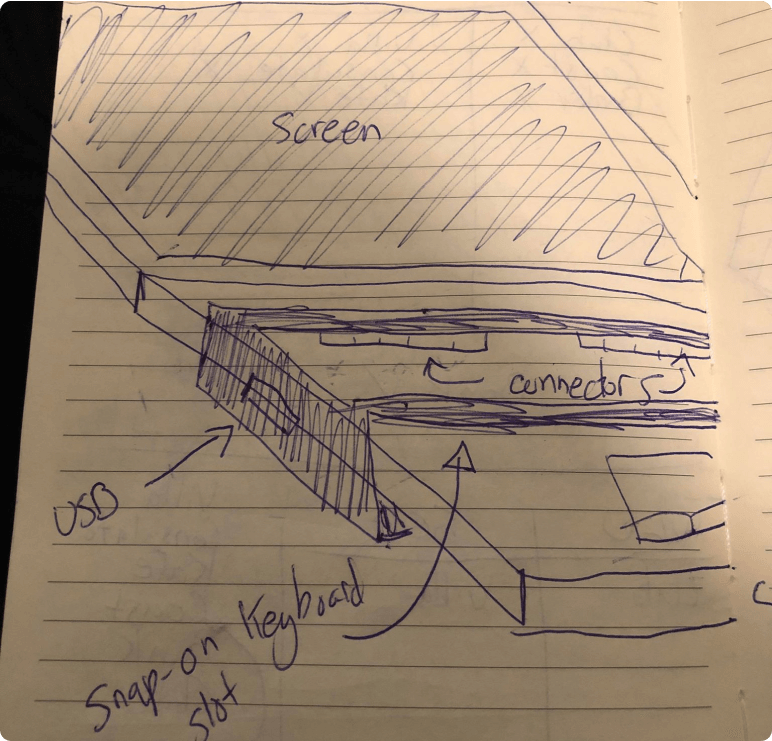 Screen
connectors
USB
Snap-on Keyboard
slot